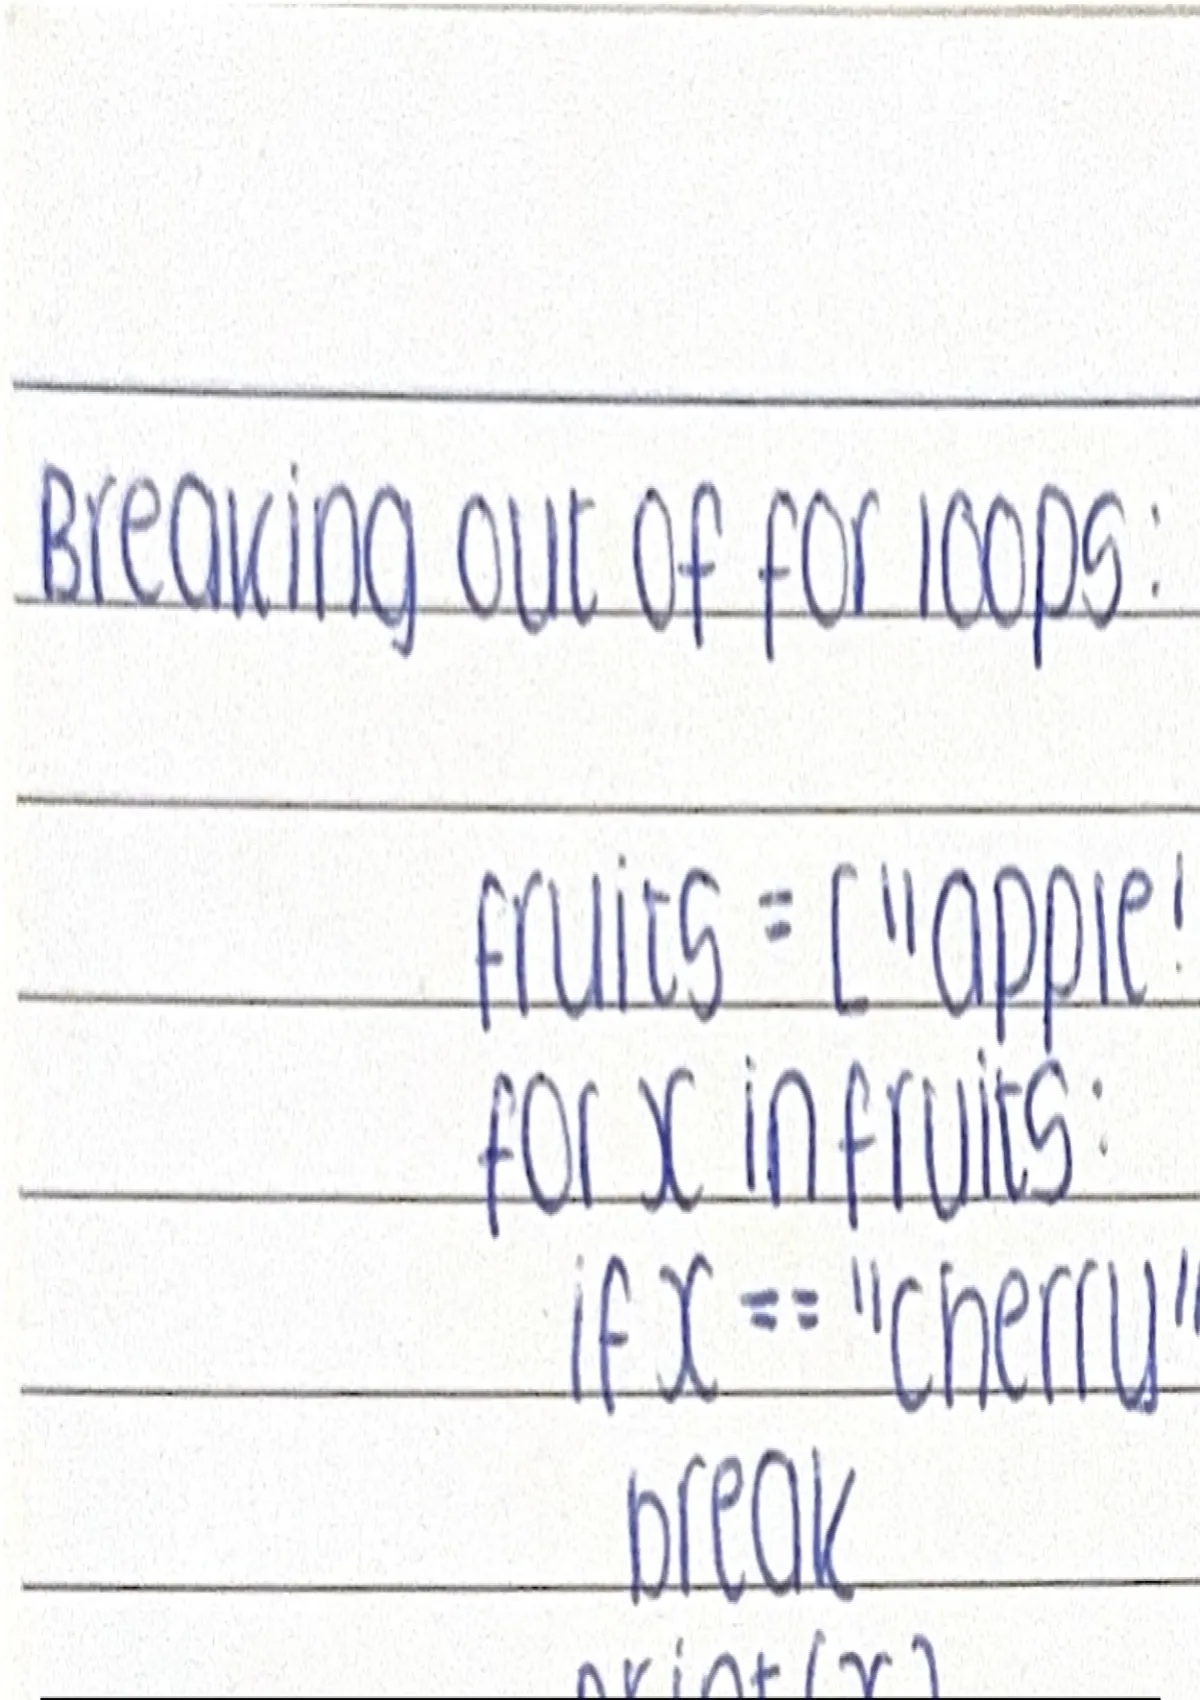 Breaking out of for loops:
fruits = ["apple"
for x in fruits:
if x == "cherry"
break
print(x)